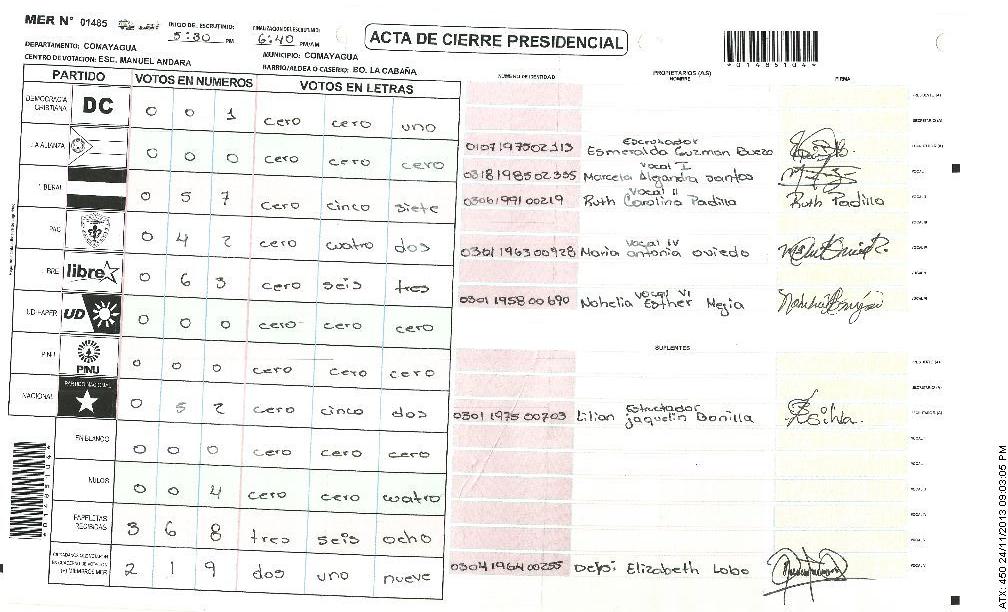 MER N° 01485
INICIO DEL ESCRUTINIO:
5:30 PM
FINALIZACION DEL ESCRUTINIO:
6:40 PM/AM
ACTA DE CIERRE PRESIDENCIAL
*0148510A*
DEPARTAMENTO: COMAYAGUA
MUNICIPIO: COMAYAGUA
CENTRO DE VOTACION: ESC. MANUEL ANDARA
BARRIO/ALDEA O CASERIO: BO. LA CABAÑA
PARTIDO VOTOS EN NUMEROS VOTOS EN LETRAS
NUMERO DE IDENTIDAD PROPIETARIOS (A/S) NOMBRE FIRMA
DEMOCRACIA CRISTIANA DC 0 0 1 cero cero uno
LA ALIANZA 0 0 0 cero cero cero
LIBERAL 0 5 7 cero cinco siete
PAC 0 4 2 cero cuatro dos
LIBRE libre 0 6 3 cero seis tres
UD-FAPER UD 0 0 0 cero cero cero
PINU PINU 0 0 0 cero cero cero
NACIONAL PARTIDO NACIONAL 0 5 2 cero cinco dos
EN BLANCO 0 0 0 cero cero cero
NULOS 0 0 4 cero cero cuatro
PAPELETAS RECIBIDAS 3 6 8 tres seis ocho
2 1 9 dos uno nueve
Escrutador
0107197502113 Esmeralda Guzman Buezo
Vocal I
0318198502355 Marcela Alejandra Santos
Vocal II
0306199100219 Ruth Carolina Padilla Ruth Padilla
Vocal IV
0301196300928 Maria antonia oviedo
Vocal VI
0301195800690 Nohelia Esther Mejia
SUPLENTES
0301197500703 Lilian jaquelin Bonilla
0304196400255 Elizabeth Lobo
ATX: 450 24/11/2013 09:03:05 PM